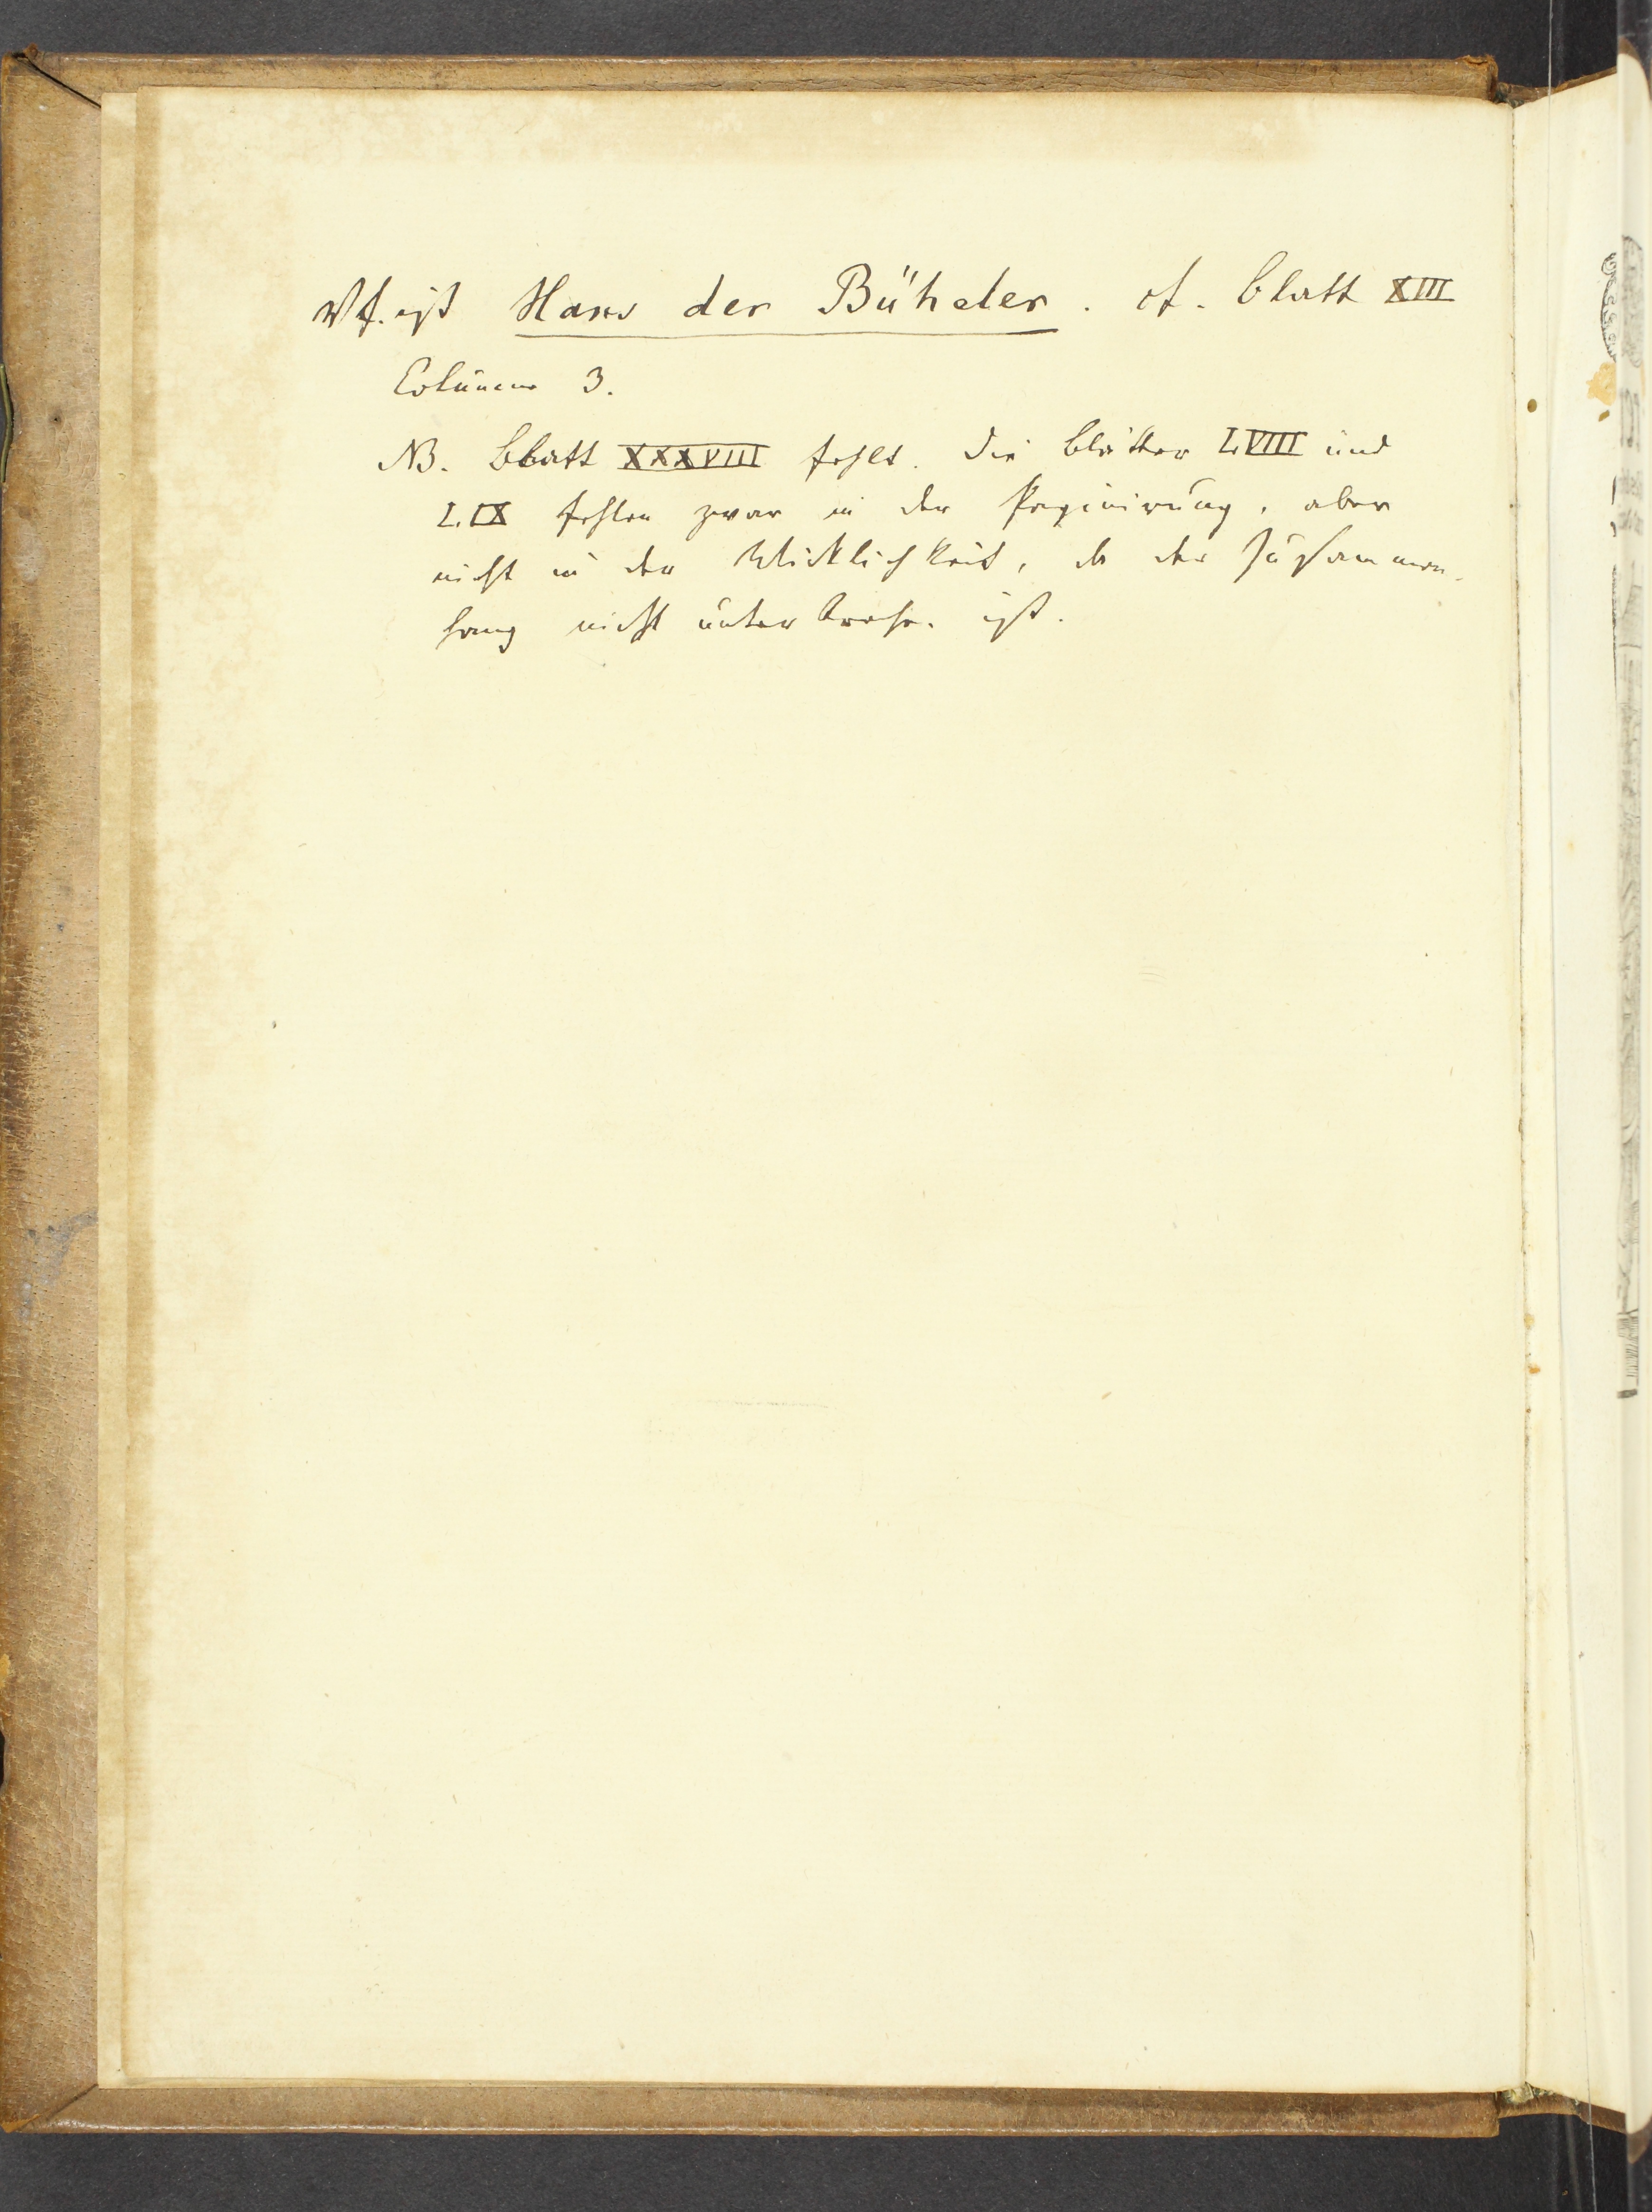 Vf. ist Hans der Büheler. cf. Blatt XIII
Columne 3.
NB. Blatt XXXVIII fehlt. Die Blätter LVIII und
LIX fehlen zwar in der Paginirung, aber
nicht in der Wirklichkeit, da der Zusammen-
hang nicht unterbroche. ist.